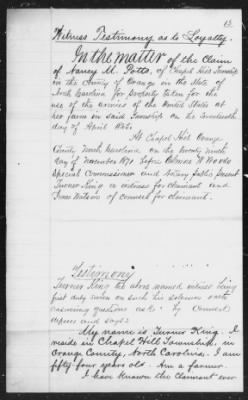 13
Witness Testimony as to Loyalty.
In the matter of the claim
of Nancy M. Potts, of Chapel Hill Township
in the County of Orange in the State of
North Carolina for property taken for the
use of the armies of the United States at
her farm in said Township on the
day of April 1865.
At Chapel Hill Orange
County North Carolina on the twenty ninth
day of November 1871 before W Woods
Special Commissioner and Notary Public present
Turner King a witness for claimant and
Jones Watson of counsel for claimant.
Testimony
Turner King the above named witness being
first duly sworn on such his solemn oath
answering questions ask by Counsel
deposes and says:
My name is Turner King. I
reside in Chapel Hill Township, in
Orange County, North Carolina. I am
fifty four years old. Am a farmer.
I have known the claimant ever